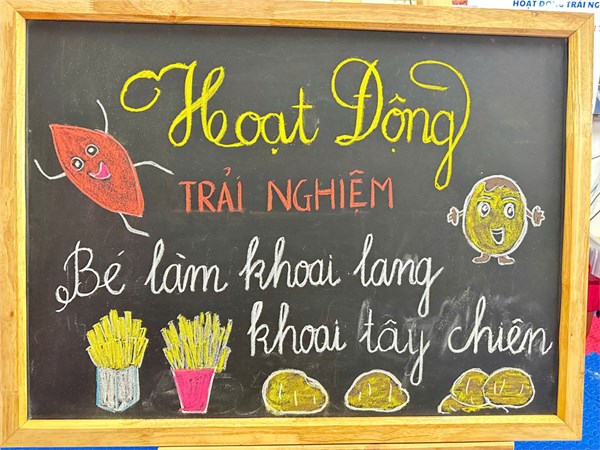 HOẠT ĐỘNG TRẢI NG
Hoạt Động
TRẢI NGHIỆM
Bé làm khoai lang
khoai tây chiên